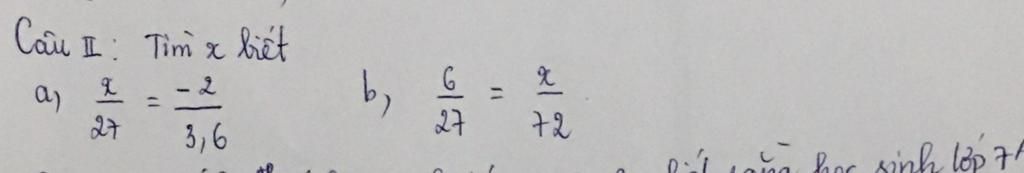 Câu II: Tìm x biết
a, x/27 = -2/3,6 b, 6/27 = x/72
biết rằng học sinh lớp 7A